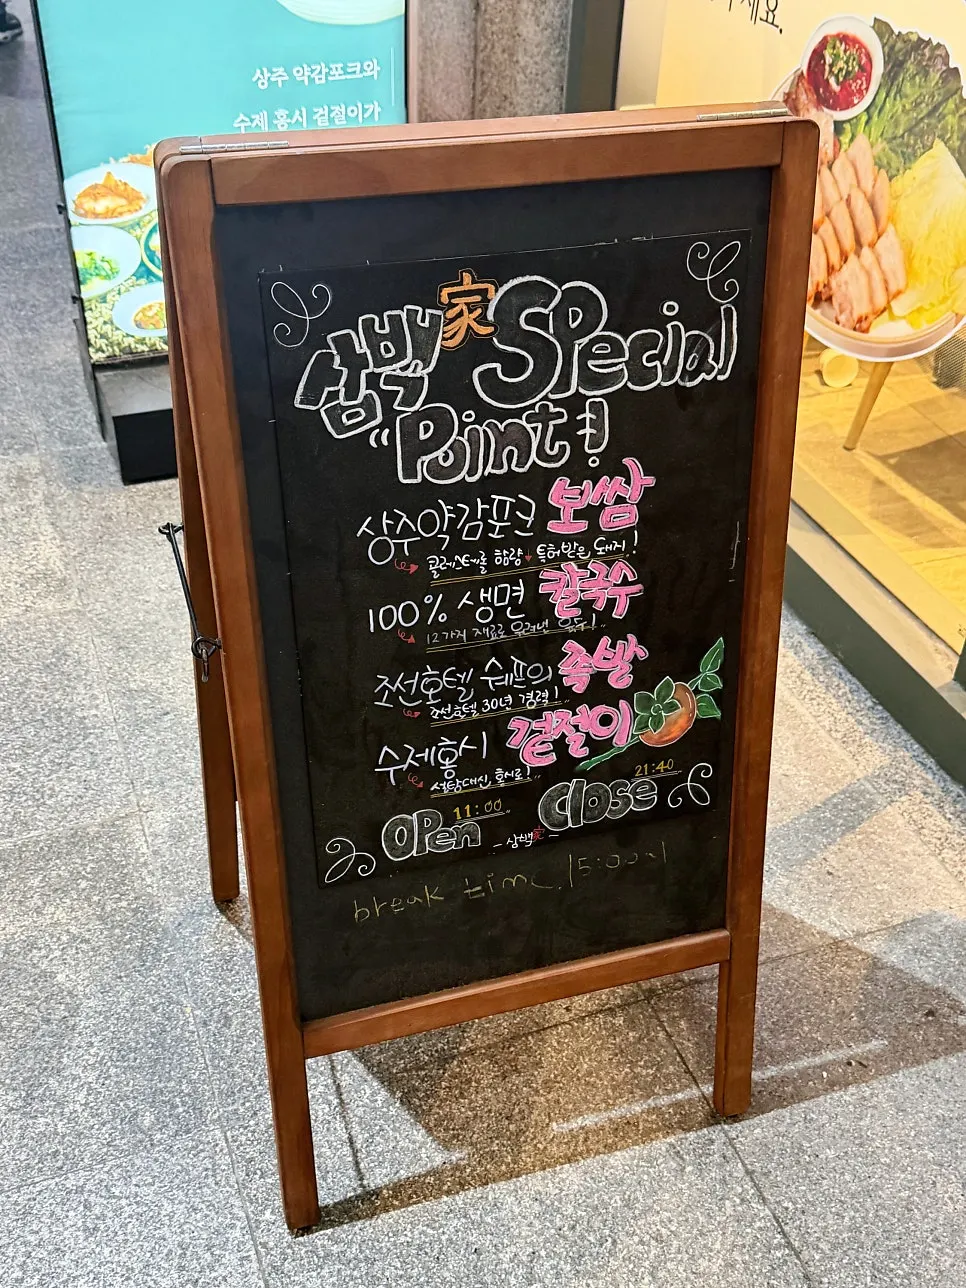 상주 약감포크와
수제 홍시 겉절이가
세요.
삼백家 Special
"Point!
상주약감포크 보쌈
콜레스테롤 함량↓ 특허받은 돼지!
100% 생면 칼국수
12가지 재료로 우려낸 육수!
조선호텔 쉐프의 족발
조선호텔 30년 경력!
수제홍시 겉절이
설탕대신, 홍시로!
11:00 21:40
OPen Close
- 삼백家 -
break time 15:00~1